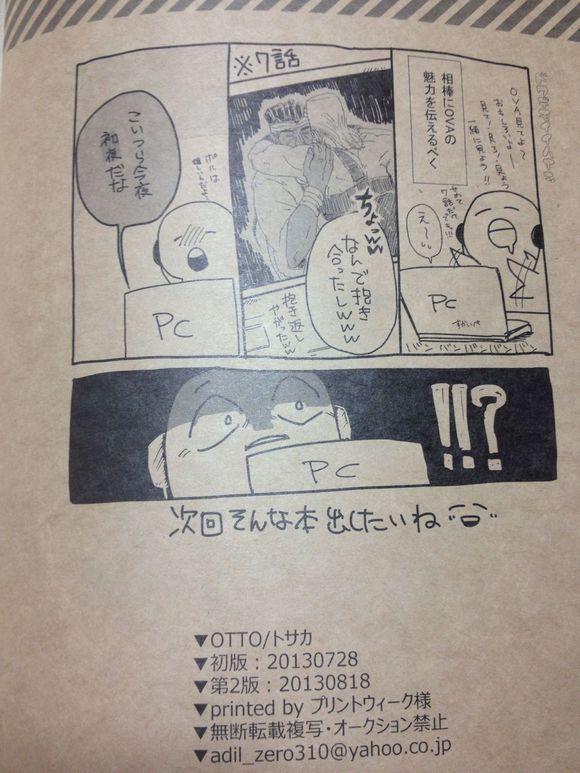 相棒にOVAの
魅力を伝えるべく
OVA見てよ〜
おもしろいよー
見て!見ろ!見よう
一緒に見よう!!
せめて
7話だけ
でも!!!
え〜ぃぃ
PC
すかいぷ
バンバンバンバンバン
※7話
ちょっww
なんで抱き
合ったしwww
抱き返し
やがったww
こいつら今夜
初夜だな
ポルは
PC
!!?
PC
次回そんな本出したいね
▼OTTO/トサカ
▼初版:20130728
▼第2版:20130818
▼printed by プリントウィーク様
▼無断転載複写・オークション禁止
▼adil_zero310@yahoo.co.jp